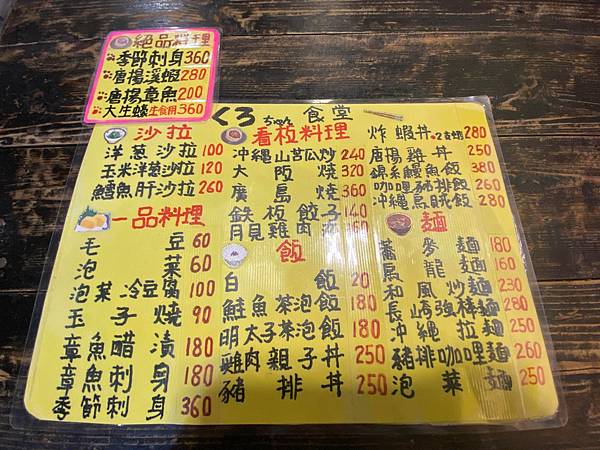 絕品料理
季節刺身360
唐揚溪蝦280
唐揚章魚200
大生蠔生食用360
くろちゃん 食堂
沙拉
洋蔥沙拉100
玉米洋蔥沙拉120
鱈魚肝沙拉260
一品料理
毛豆60
泡菜60
泡菜冷豆腐100
玉子燒90
章魚醋漬180
章魚刺身180
季節刺身360
看板料理
沖縄山苦瓜炒240
大阪燒320
廣島燒360
鉄板餃子140
月見雞肉160
飯
白飯20
鮭魚茶泡飯180
明太子茶泡飯180
雞肉親子丼250
豬排丼250
炸蝦丼280
唐揚雞丼250
錦糸鰻魚飯380
咖哩豬排飯260
沖縄飯280
麵
蕎麥麵180
烏龍麵160
和風炒麵230
長崎強棒麵280
沖縄拉麵250
豬排咖哩麵260
泡菜麵250